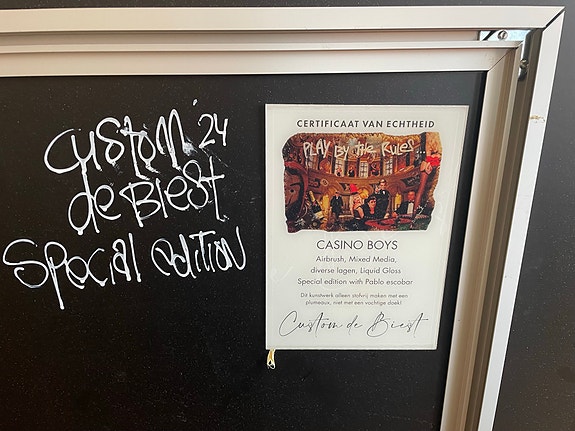 Custom '24
de Biest
Special edition
CERTIFICAAT VAN ECHTHEID
PLAY BY THE RULES...
CASINO BOYS
Airbrush, Mixed Media,
diverse lagen, Liquid Gloss
Special edition with Pablo escobar
Dit kunstwerk alleen stofvrij maken met een
plumeaux, niet met een vochtige doek!
Custom de Biest